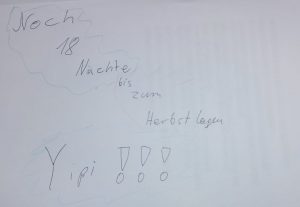 Noch
18
Nächte
bis
zum
Herbstlager
Yipi !!!